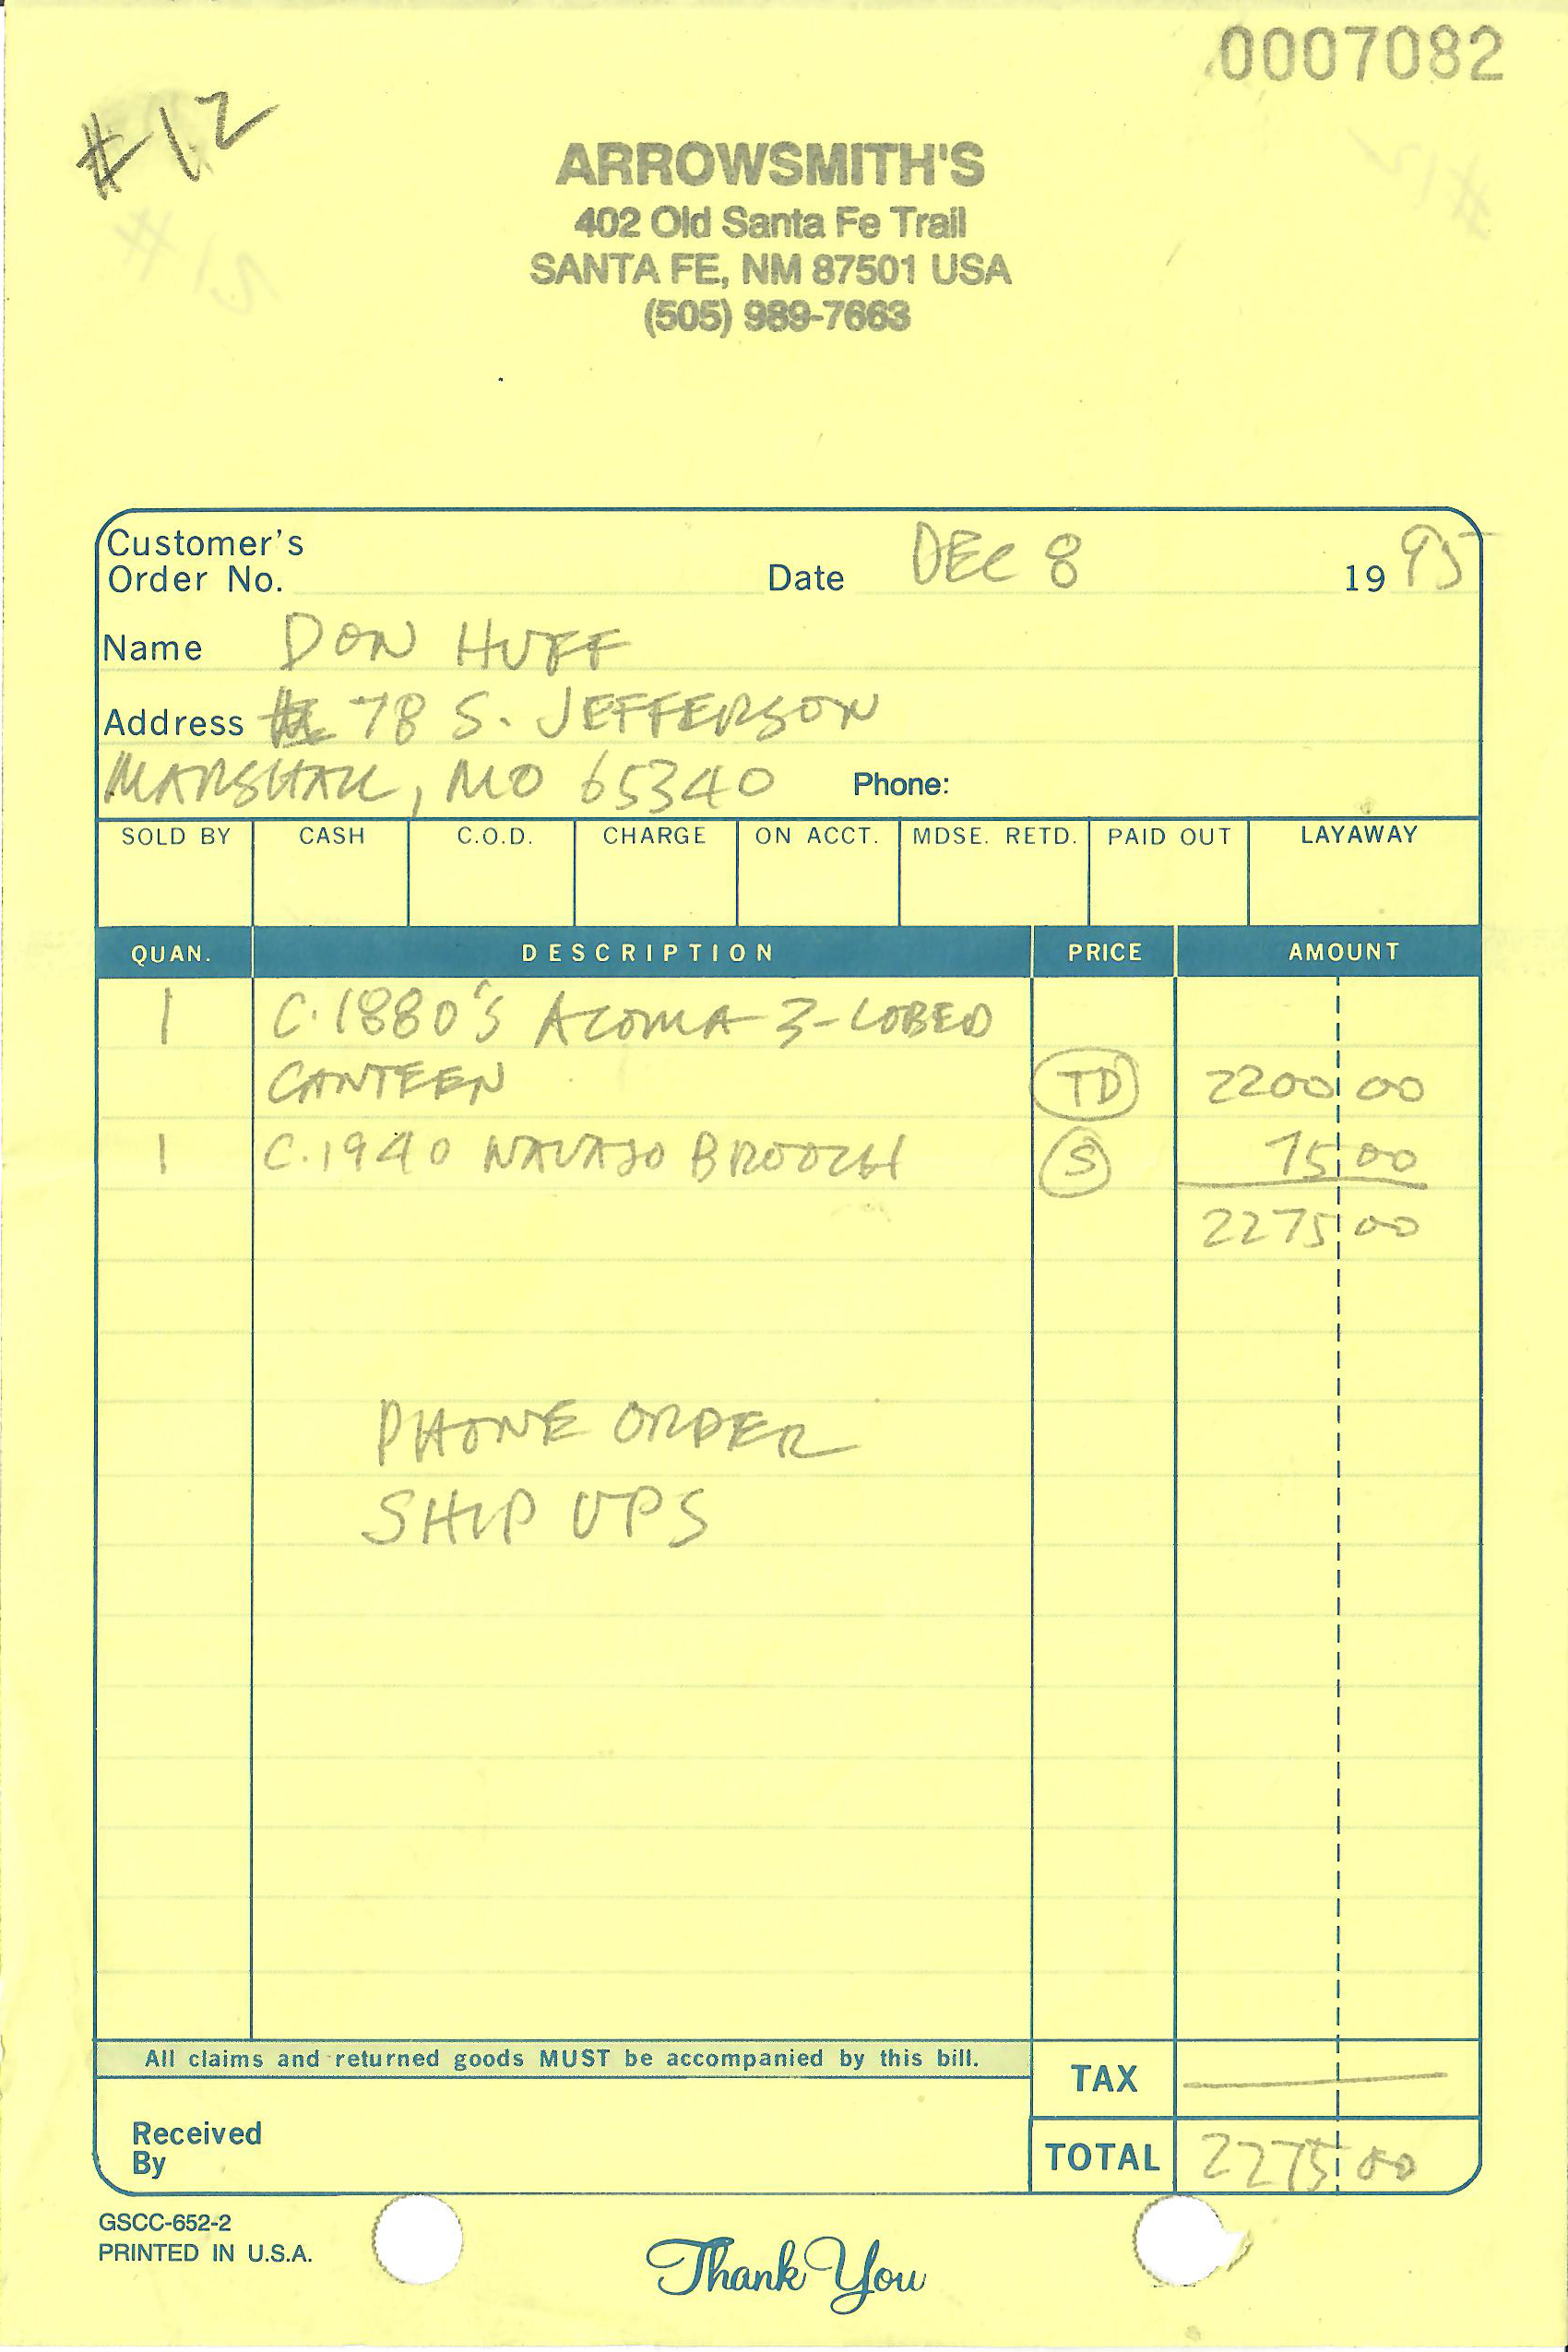 0007082
#12
ARROWSMITH'S
402 Old Santa Fe Trail
SANTA FE, NM 87501 USA
(505) 989-7663
Customer's
Order No. Date DEC 8 1995
Name DON HUFF
Address 78 S. JEFFERSON
MARSHALL, MO 65340 Phone:
SOLD BY CASH C.O.D. CHARGE ON ACCT. MDSE. RETD. PAID OUT LAYAWAY
QUAN. DESCRIPTION PRICE AMOUNT
1 C.1880'S ACOMA 3-LOBED
CANTEEN TD 2200 00
1 C.1940 NAVAJO BROOCH S 75 00
2275 00
PHONE ORDER
SHIP UPS
All claims and returned goods MUST be accompanied by this bill.
TAX —
Received
By
TOTAL 2275 00
GSCC-652-2
PRINTED IN U.S.A.
Thank You